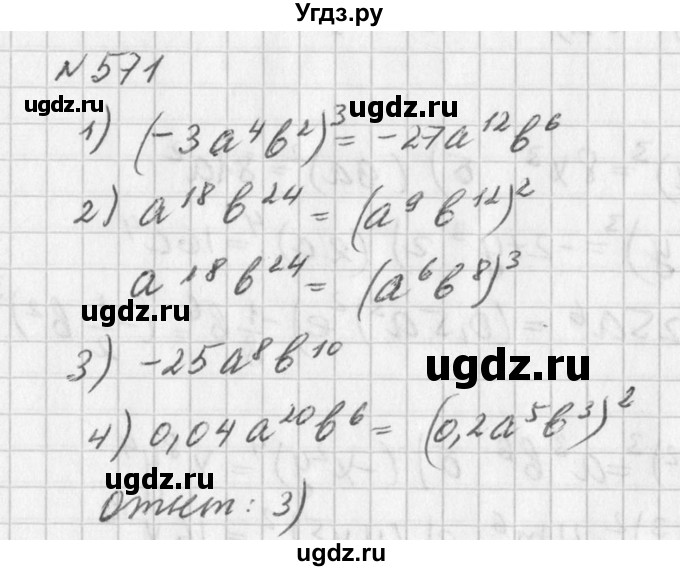 Угдз.ру
N 571
ugdz.ru ugdz.ru
1) (-3a⁴b²)³ = -27a¹²b⁶
2) a¹⁸b²⁴ = (a⁹b¹²)²
a¹⁸b²⁴ = (a⁶b⁸)³
ugdz.ru
3) -25a⁸b¹⁰
ugdz.ru
4) 0,04a²⁰b⁶ = (0,2a⁵b³)²
ugdz.ru
ответ: 3)
ugdz.ru
ugdz.ru